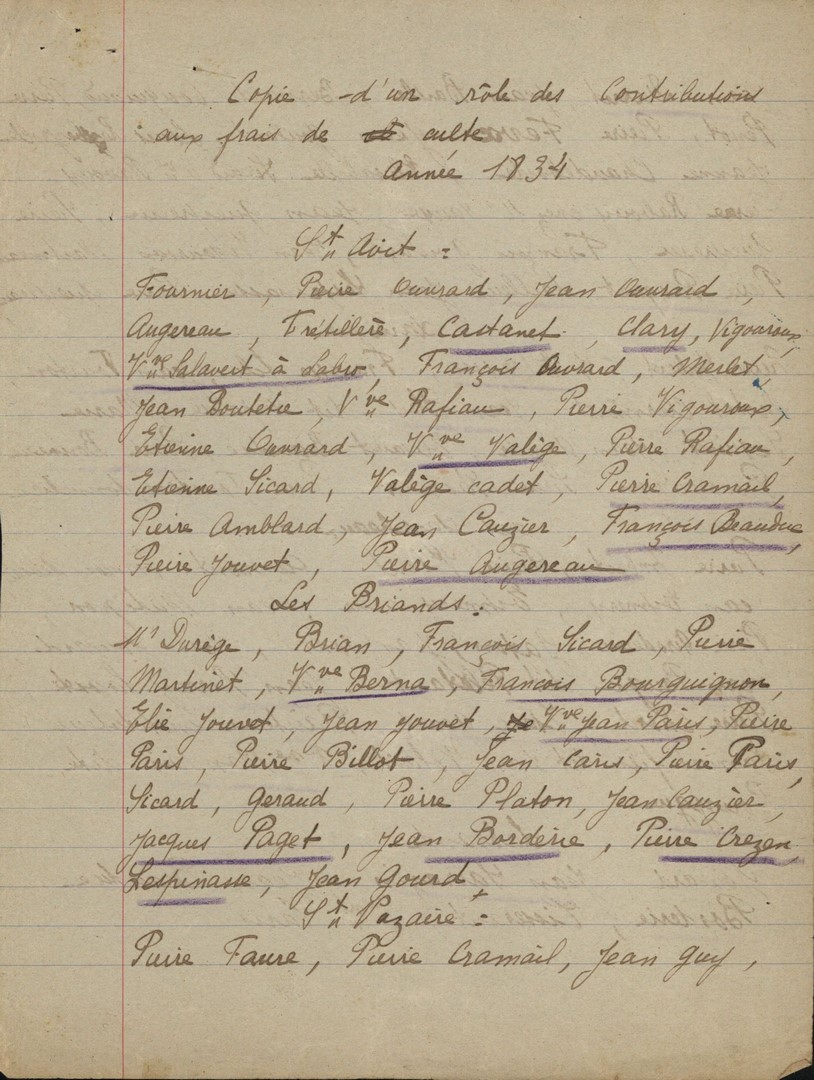 Copie d'un rôle des Contributions
aux frais de culte
Année 1834
St Avit :
Fournier, Pierre Ouvrard, Jean Ouvrard,
Augereau, Trétillère, Castanet, Clary, Vigouroux,
Vve Salavert à Labro, François Ouvrard, Merlet,
Jean Boutetie, Vve Rafiau, Pierre Vigouroux,
Etienne Ouvrard, Vve Valège, Pierre Rafiau,
Etienne Sicard, Valège cadet, Pierre Cramail,
Pierre Amblard, Jean Cauzier, François Beauduc,
Pierre Jouvet, Pierre Augereau
Les Briands :
Mr Durège, Brian, François Sicard, Pierre
Martinet, Vve Berna, Francois Bourguignon,
Elie Jouvet, Jean Jouvet, Vve Jean Paris, Pierre
Paris, Pierre Billot, Jean Caris, Pierre Paris,
Sicard, Geraud, Pierre Platon, Jean Cauzier,
Jacques Paget, Jean Borderie, Pierre Crezen,
Lespinasse, Jean Gourd
St Nazaire :
Pierre Faure, Pierre Cramail, Jean Guy,